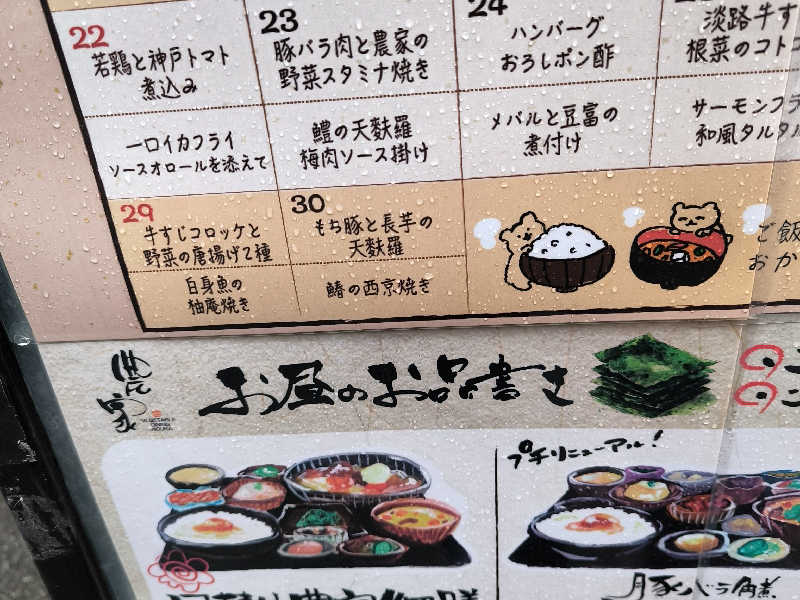 22
若鶏と神戸トマト
煮込み
一口イカフライ
ソースオロールを添えて
23
豚バラ肉と農家の
野菜スタミナ焼き
鱧の天麩羅
梅肉ソース掛け
24
ハンバーグ
おろしポン酢
メバルと豆富の
煮付け
淡路牛す
根菜のコトコ
サーモンフラ
和風タルタル
29
牛すじコロッケと
野菜の唐揚げ2種
白身魚の
柚庵焼き
30
もち豚と長芋の
天麩羅
鰆の西京焼き
ご飯
おか
農家
お昼のお品書き
プチリニューアル！
豚バラ角煮